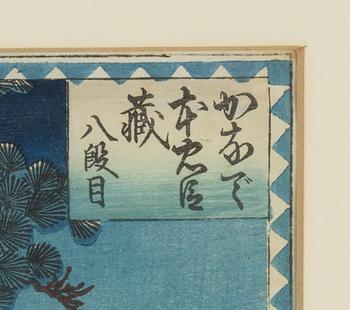 かなで
本忠臣
藏
八段目